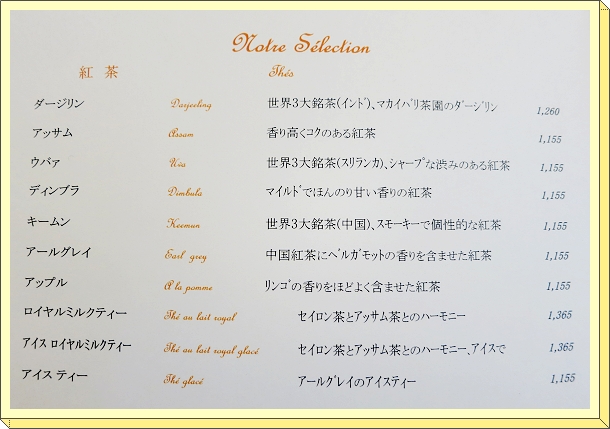 Notre Sélection
紅 茶 Thés
ダージリン Darjeeling 世界3大銘茶(インド)、マカイバリ茶園のダージリン 1,260
アッサム Assam 香り高くコクのある紅茶 1,155
ウバァ Uva 世界3大銘茶(スリランカ)、シャープな渋みのある紅茶 1,155
ディンブラ Dimbula マイルドでほんのり甘い香りの紅茶 1,155
キームン Keemun 世界3大銘茶(中国)、スモーキーで個性的な紅茶 1,155
アールグレイ Earl grey 中国紅茶にベルガモットの香りを含ませた紅茶 1,155
アップル A la pomme リンゴの香りをほどよく含ませた紅茶 1,155
ロイヤルミルクティー Thé au lait royal セイロン茶とアッサム茶とのハーモニー 1,365
アイス ロイヤルミルクティー Thé au lait royal glacé セイロン茶とアッサム茶とのハーモニー、アイスで 1,365
アイス ティー Thé glacé アールグレイのアイスティー 1,155